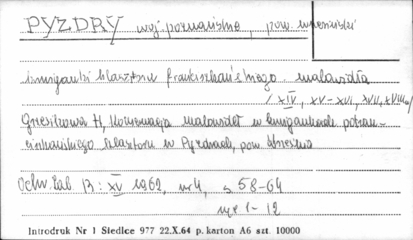 PYZDRY woj. poznańskie, pow. wrzesiński
krużganki klasztoru franciszkańskiego. malowidła
/ XIV, XV-XVI, XVII, XVIII w/
Grzesikowa H, Konserwacja malowideł w krużgankach pofran-
ciszkańskiego klasztoru w Pyzdrach, pow. Września
Ochr. Zab B: XV 1962, nr 4, s 58-64
ryc 1-12
Introdruk Nr 1 Siedlce 977 22.X.64 p. karton A6 szt. 10000